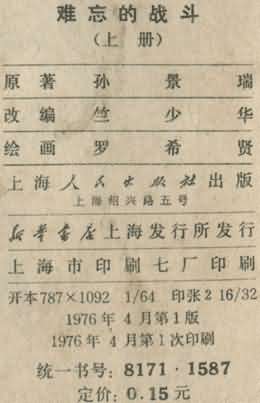 难忘的战斗
（上册）
原著 孙景瑞
改编 竺少华
绘画 罗希贤
上海人民出版社出版
上海绍兴路五号
新华书店上海发行所发行
上海市印刷七厂印刷
开本787×1092 1/64 印张2 16/32
1976年4月第1版
1976年4月第1次印刷
统一书号：8171·1587
定价：0.15元